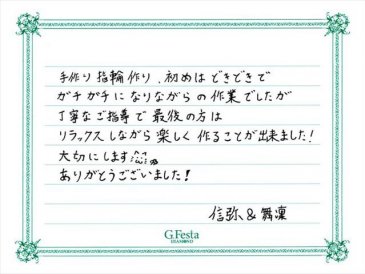 手作り指輪作り、初めはどきどきで
ガチガチになりながらの作業でしたが
丁寧なご指導で最後の方は
リラックスしながら楽しく作ることが出来ました!
大切にします
ありがとうございました!
信弥&舞凜
G.Festa
DIAMOND